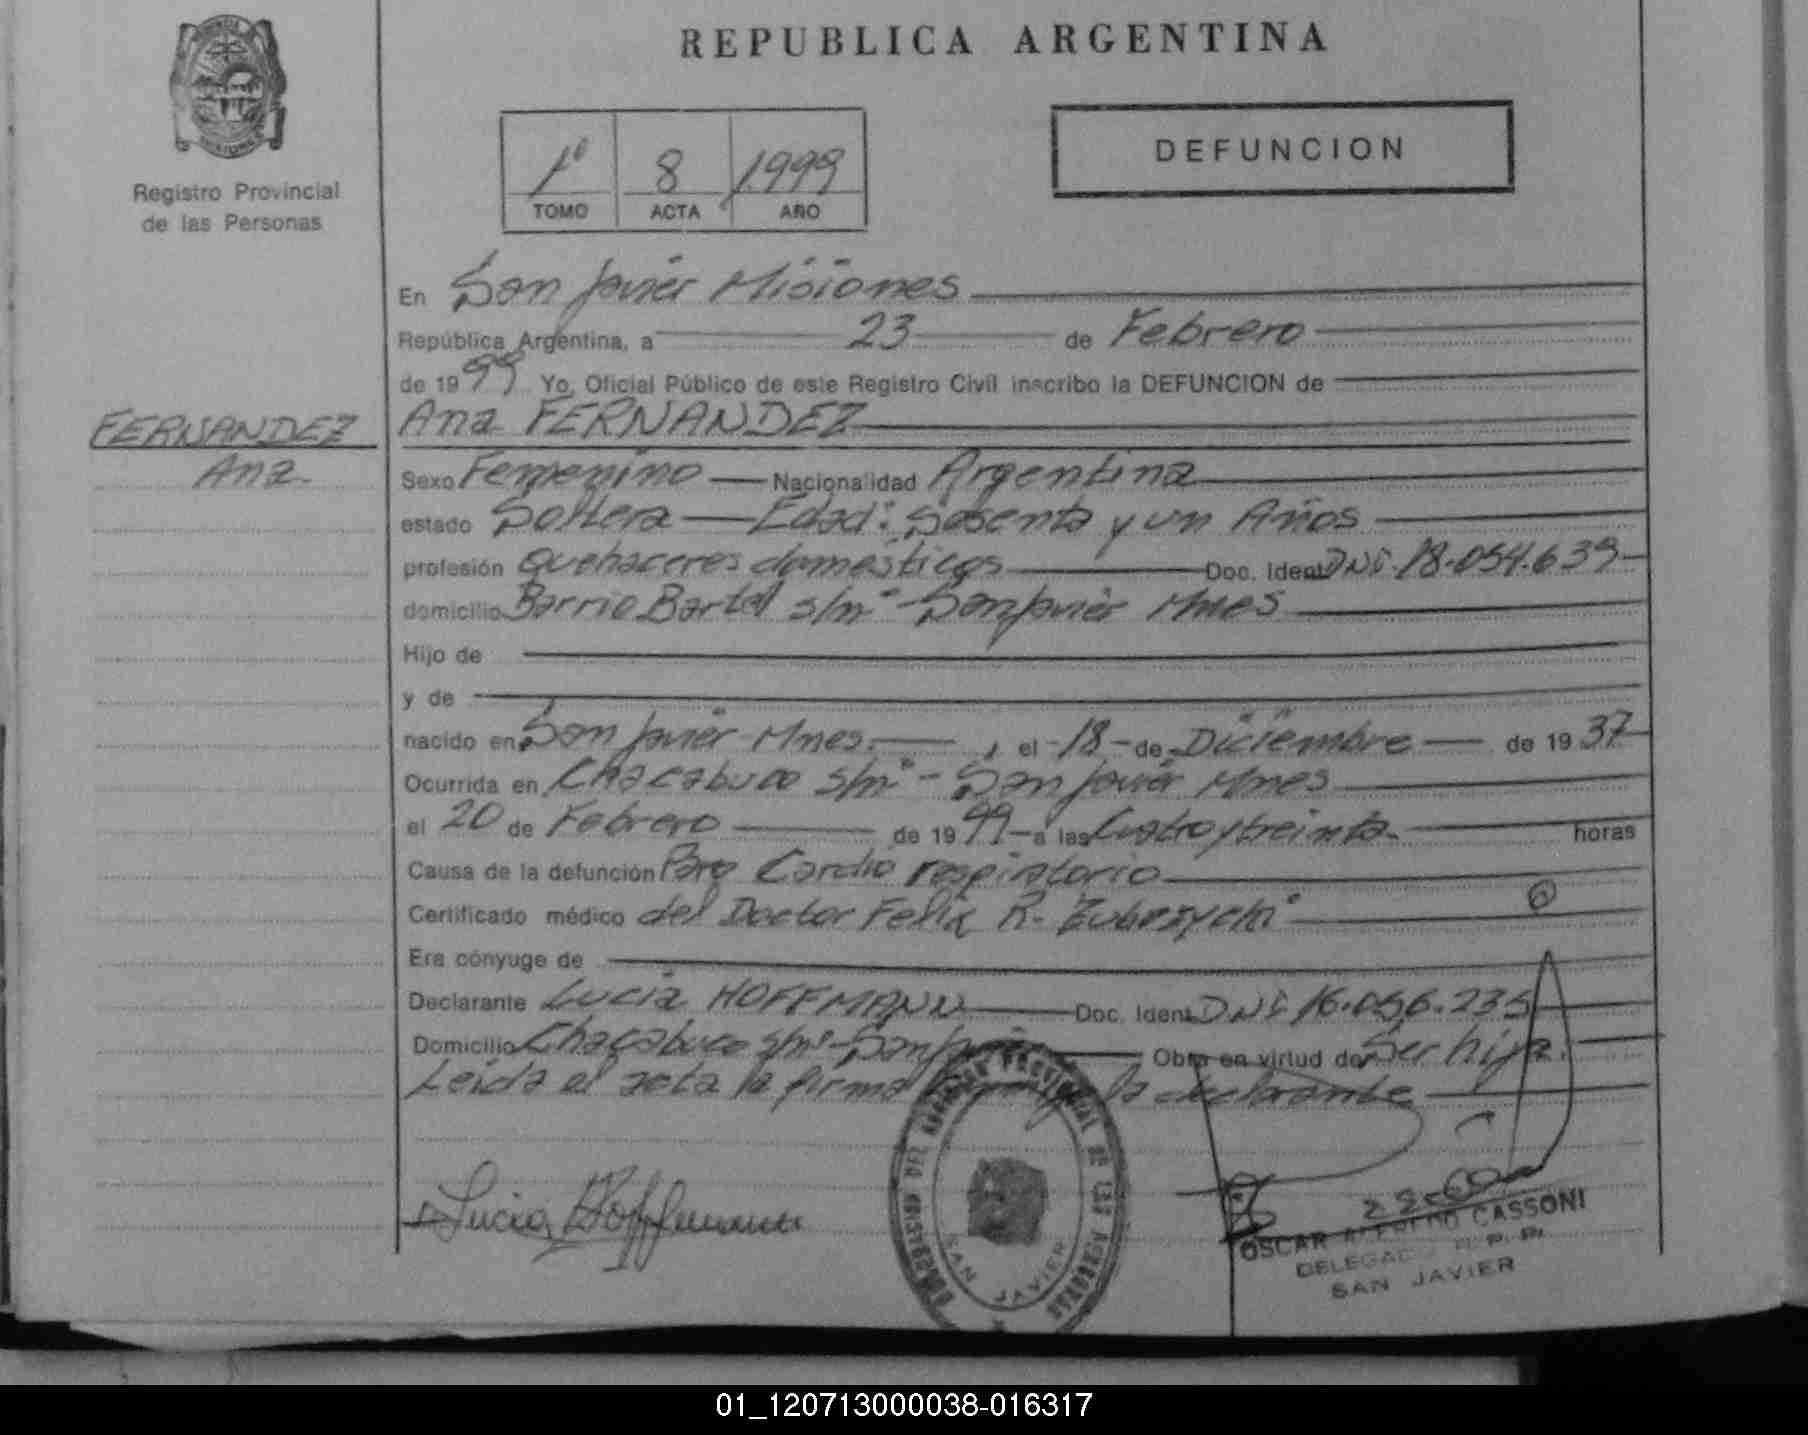 REPUBLICA ARGENTINA
Registro Provincial
de las Personas
1º 8 1999
TOMO ACTA AÑO
DEFUNCION
En San Javier Misiones
República Argentina, a 23 de Febrero
de 1999 Yo, Oficial Público de este Registro Civil inscribo la DEFUNCION de
FERNANDEZ
Ana
Ana FERNANDEZ
Sexo Femenino Nacionalidad Argentina
estado Soltera Edad: Sesenta y un Años
profesión quehaceres domésticos Doc. Ident DNI. 18.054.639
domicilio Barrio Bartel s/nº - San Javier Mnes
Hijo de
y de
nacido en San Javier - Mnes. , el 18 de Diciembre de 1937
Ocurrida en Chacabuco s/nº - San Javier Mnes
el 20 de Febrero de 1999 a las Cuatro y treinta horas
Causa de la defunción Paro Cardio respiratorio
Certificado médico del Doctor Felix R.
Era cónyuge de
Declarante Lucia HOFFMANN Doc. Ident DNI 16.056.235
Domicilio Chacabuco s/nº - San Javier Obra en virtud de Ser hija.
Leida el acta la firma la declarante
Lucia Hoffmann
DEL REGISTRO PROVINCIAL DE LAS PERSONAS
SAN JAVIER
OSCAR ALFREDO CASSONI
DELEGADO R. P. P.
SAN JAVIER
01_120713000038-016317